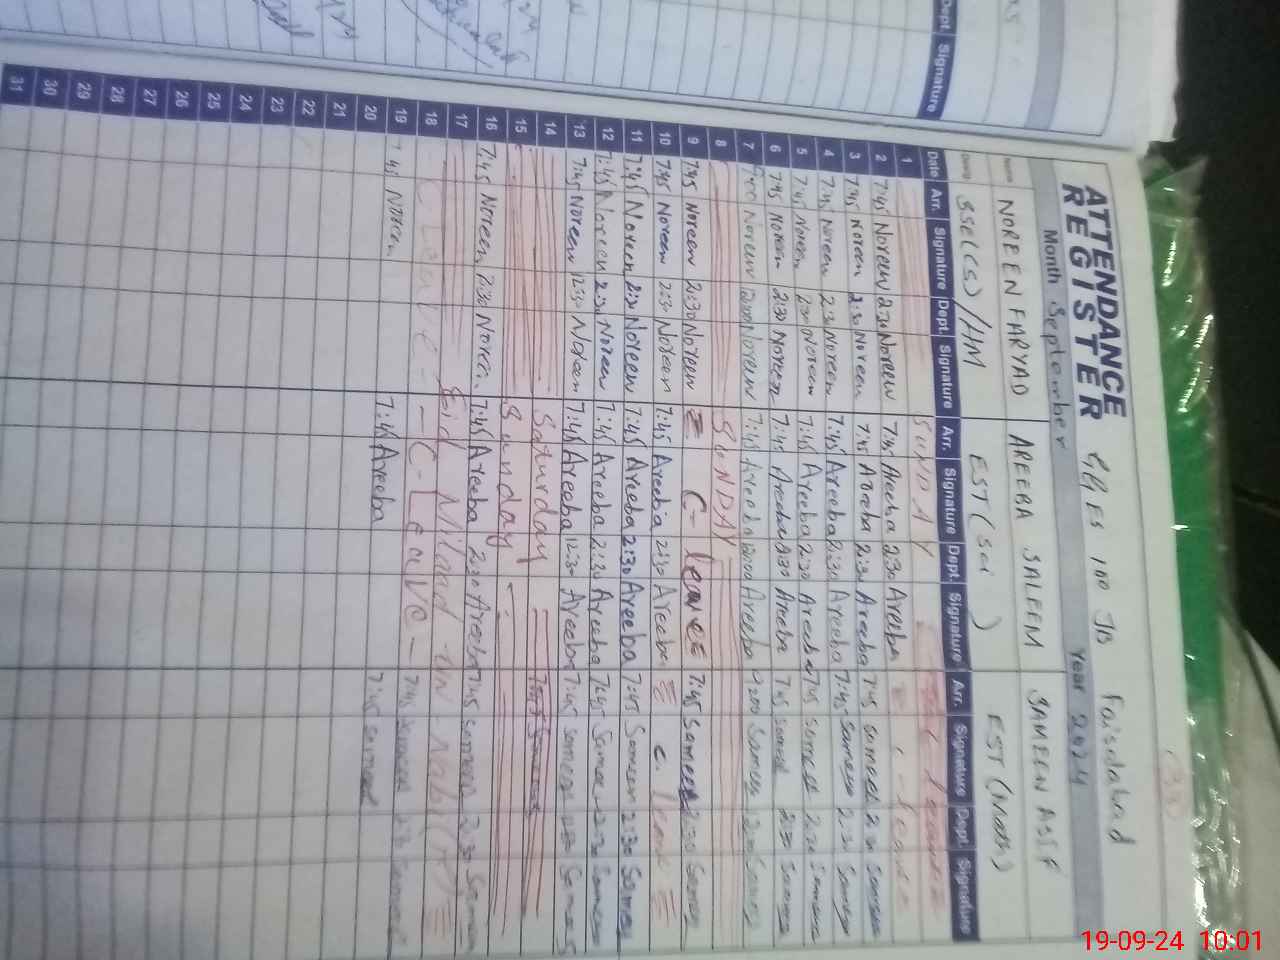 ATTENDANCE REGISTER
GGES 100 JB Faisalabad
Month September Year 2024
Name NOREEN FARYAD AREEBA SALEEM SAMEEN ASIF
SSE(CS)/HM EST(Sci) EST(Math)
Date Arr. Signature Dept. Signature Arr. Signature Dept. Signature Arr. Signature Dept. Signature
1 SUNDAY
2 7:45 Noreen 2:30 Noreen 7:45 Areeba 2:30 Areeba C-leave
3 7:45 Noreen 2:30 Noreen 7:45 Areeba 2:30 Areeba 7:45 Sameen 2:30 Sameen
4 7:45 Noreen 2:30 Noreen 7:45 Areeba 2:30 Areeba 7:45 Sameen 2:30 Sameen
5 7:45 Noreen 2:30 Noreen 7:45 Areeba 2:30 Areeba 7:45 Sameen 2:30 Sameen
6 7:45 Noreen 2:30 Noreen 7:45 Areeba 2:30 Areeba 7:45 Sameen 2:30 Sameen
7 Noreen 12:00 Noreen 7:45 Areeba 12:00 Areeba Sameen 12:00 Sameen
8 SUNDAY
9 7:45 Noreen 2:30 Noreen C-leave 7:45 Sameen 2:30 Sameen
10 7:45 Noreen 2:30 Noreen 7:45 Areeba 2:30 Areeba C. leave
11 7:45 Noreen 2:30 Noreen 7:45 Areeba 2:30 Areeba 7:45 Sameen 2:30 Sameen
12 7:45 Noreen 2:30 Noreen 7:45 Areeba 2:30 Areeba 7:45 Sameen 2:30 Sameen
13 7:45 Noreen 12:30 Noreen 7:45 Areeba 12:30 Areeba 7:45 Sameen 12:30 Sameen
14 Saturday
15 Sunday
16 7:45 Noreen 2:30 Noreen 7:45 Areeba 2:30 Areeba 7:45 Sameen 2:30 Sameen
17 Eid Milad-un-Nabi
18 C-Leave C-Leave 7:45 Sameen 2:30 Sameen
19 7:45 Noreen 7:45 Areeba 7:45 Sameen
20
21
22
23
24
25
26
27
28
29
30
31
Dept. Signature
19-09-24 10:01